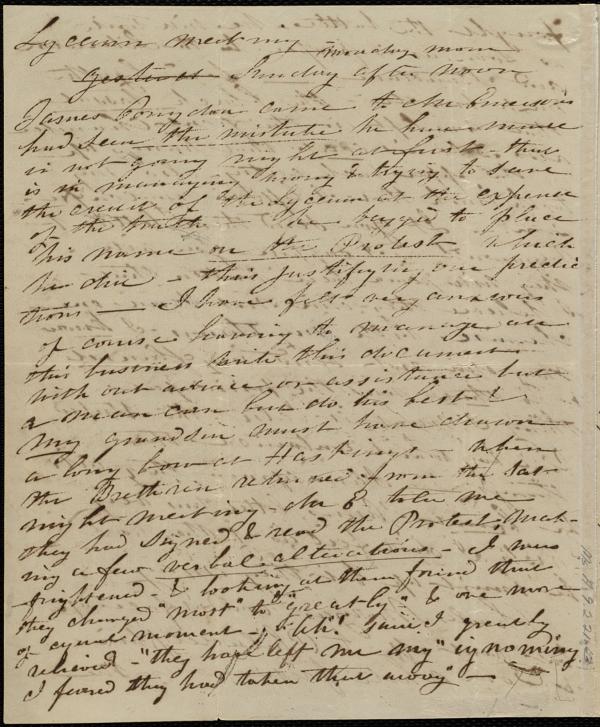 Lyceum meeting Monday morn
yesterday Sunday afternoon
James Congdon came to Mr Emerson's
had seen the mistake he have made
in not going right at first - that
is in managing wrong & trying to save
the credit of the Lyceum at the expense
of the truth - he begged to place
his name on the Protest which
he did - thus justifying our predic
tions - I have felt very anxious
of course having to manage all
this business write this document
with out advice or assistance but
a man can but do his best!
My grandsire must have drawn
a long bow at Hastings - when
the Brethren returned from the Sat
night meeting - Mr E told me
they had Signed & read the Protest, mak-
ing a few verbal alterations - I was
frightened - & looking at them found that
they changed "most" to "greatly" & one more
of equal moment - "Ah"! said I greatly
relieved - "they have left me my "ignominy"
I feared they had taken that away" -